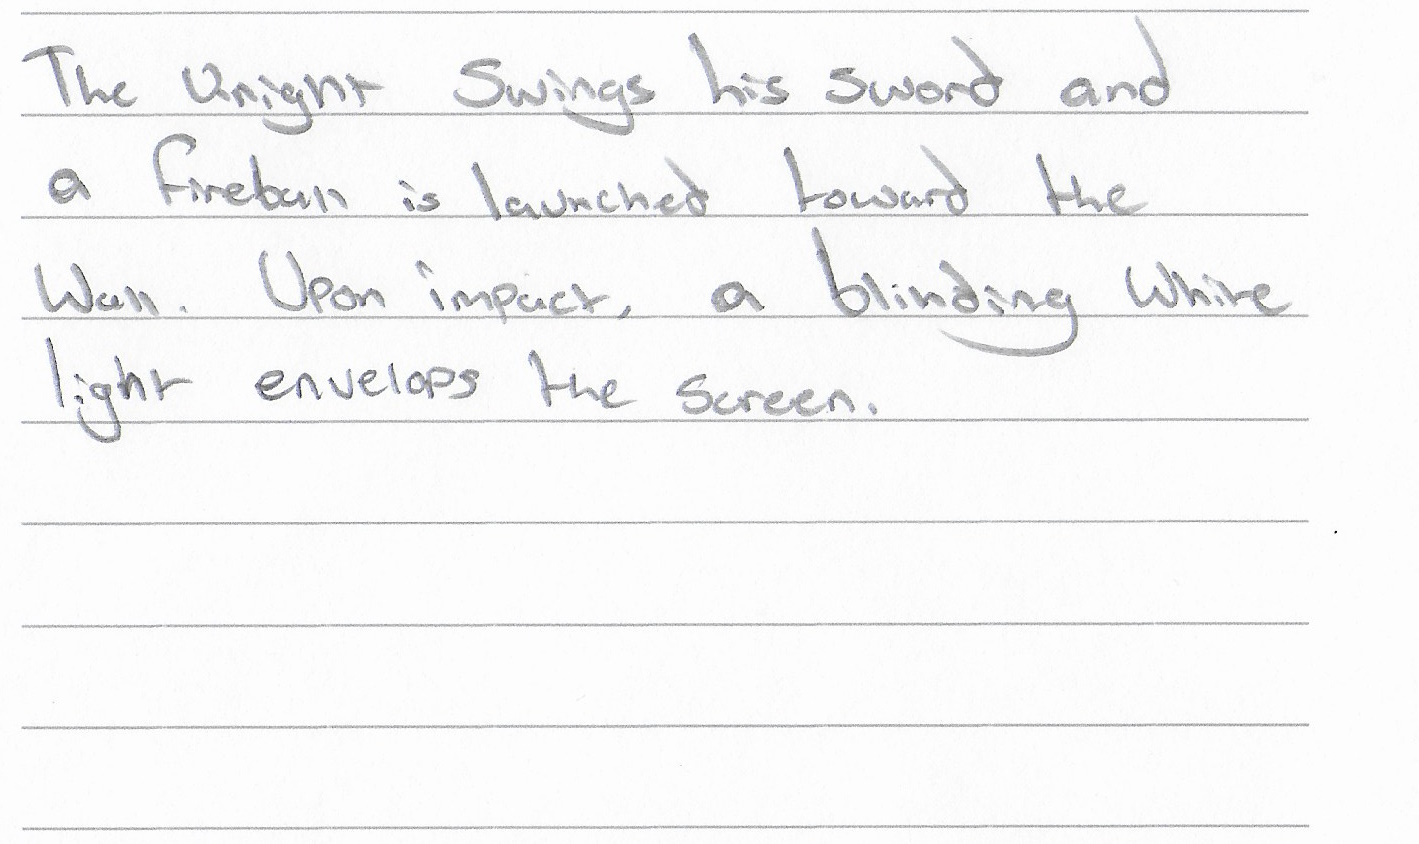 The Knight Swings his sword and
a fireball is launched toward the
Wall. Upon impact, a blinding White
light envelops the screen.